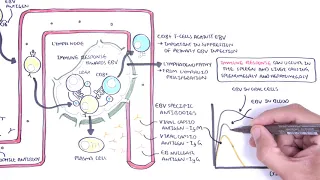 LYMPH NODE
IMMUNE RESPONSE
TOWARDS EBV
CD8+ T-CELLS AGAINST EBV
→ IMPORTANT IN SUPPRESSION
OF PRIMARY EBV INFECTION
LYMPHADENOPATHY
→ FROM LYMPHOID PROLIFERATION
EBV SPECIFIC
ANTIBODIES
VIRAL CAPSID
ANTIGEN - IgM
VIRAL CAPSID
ANTIGEN - IgG
EB NUCLEAR
ANTIGEN - IgG
PLASMA CELL
IMMUNE RESPONSE CAN OCCUR IN
THE SPLEEN AND LIVER CAUSING
SPLENOMEGALY AND HEPATOMEGALY
EBV IN ORAL CELLS
EBV IN BLOOD